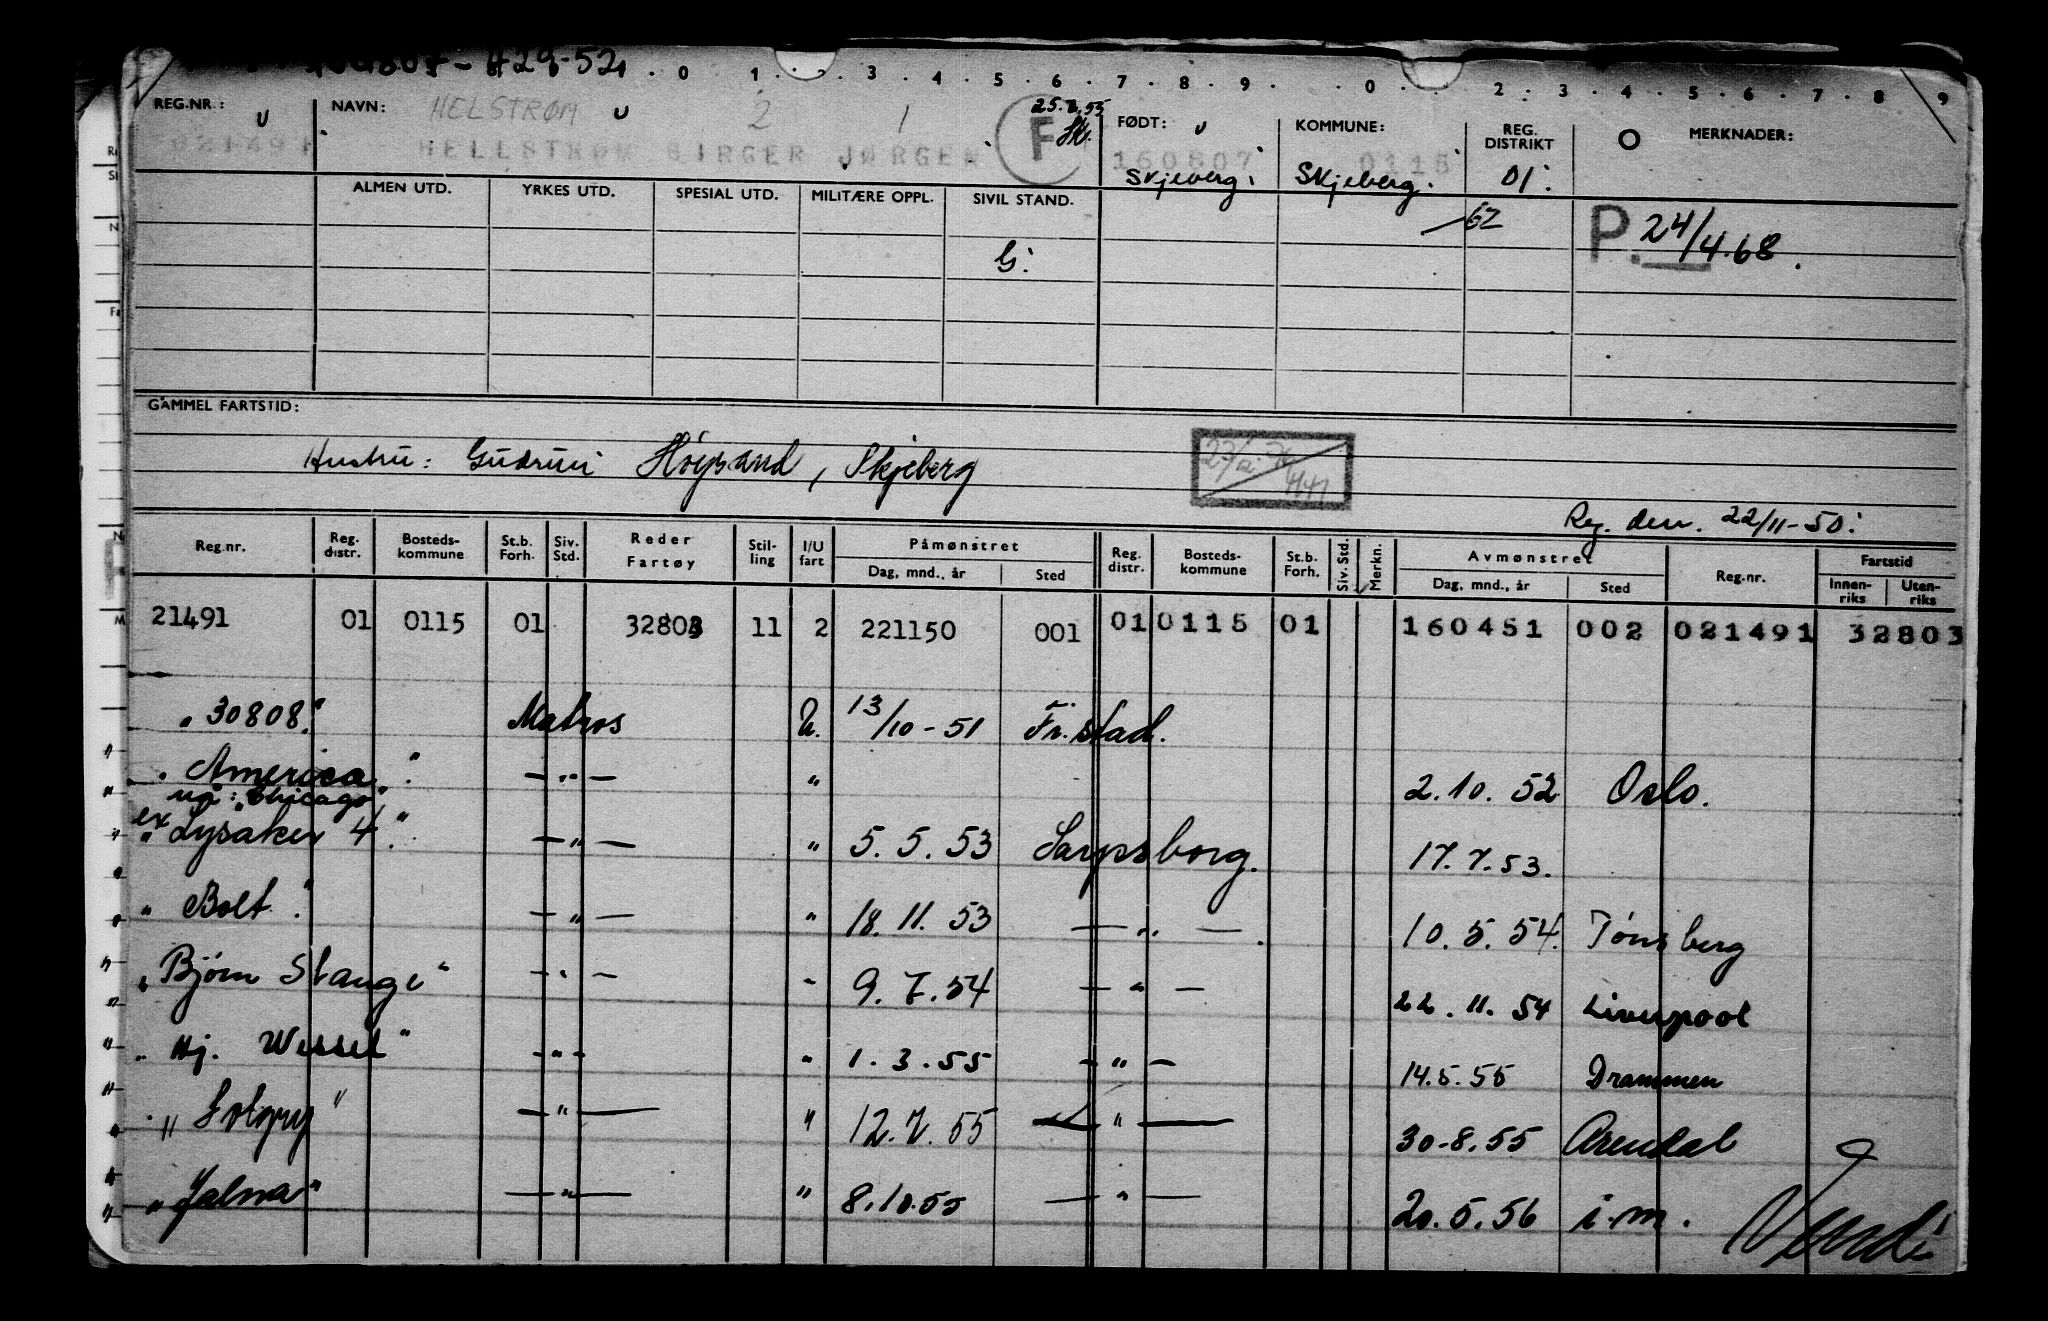 160807 - 429-52.
0 . 1 . 2 . 3 . 4 . 5 . 6 . 7 . 8 . 9 . 0 . 2 . 3 . 4 . 5 . 6 . 7 . 8 . 9
REG.NR.: NAVN: HELSTRØM 2 1 F 25.8.55 FØDT: KOMMUNE: REG. DISTRIKT O MERKNADER:
021491 HELLSTRØM BIRGER JØRGEN 160807 0115
Skjeberg. Skjeberg. 01.
ALMEN UTD. YRKES UTD. SPESIAL UTD. MILITÆRE OPPL. SIVIL STAND.
62 P. 24/4.68.
G.
GAMMEL FARTSTID:
Hustru: Gudrun Høysand, Skjeberg
Reg. den. 22/11-50.
Reg.nr. Reg. distr. Bosteds-kommune St.b. Forh. Siv. Std. Reder Fartøy Stil-ling I/U fart Påmønstret Reg. distr. Bosteds-kommune St.b. Forh. Siv. Std. Merkn. Avmønstret Reg.nr. Fartstid
Dag, mnd., år Sted Dag, mnd., år Sted Innen-riks Uten-riks
21491 01 0115 01 32803 11 2 221150 001 01 0115 01 160451 002 021491 32803
"30808." Matros U. 13/10-51 Fr.stad.
"America". — " — " 2.10.52 Oslo.
nå: "Chicago"
ex "Lysaker 4". — " — " 5.5.53 Sarpsborg. 17.7.53.
"Bolt". — " — " 18.11.53 — " —. 10.5.54. Tønsberg
"Bjørn Stange" — " — " 9.7.54 — " — 22.11.54 Liverpool
"Hj. Wessel" - " - " 1.3.55 - " - 14.5.55 Drammen
"Solgry" — " — " 12.7.55 — " — 30-8.55 Arendal
"Jalna" — " — " 8.10.55 — " — 20.5.56 i.m.
Vend!